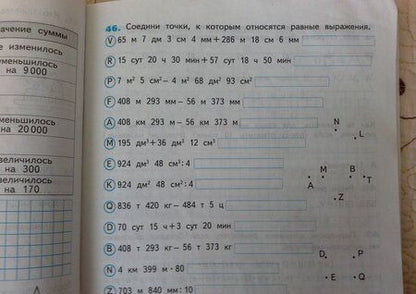 ачение суммы
е изменилось
уменьшилось
на 9 000
меньшилось
на 20 000
величилось
на 300
величилось
на 170
46. Соедини точки, к которым относятся равные выражения.
V 65 м 7 дм 3 см 4 мм + 286 м 18 см 6 мм
R 15 сут 20 ч 30 мин + 57 сут 18 ч 50 мин
P 7 м² 5 см² – 4 м² 68 дм² 93 см²
F 408 м 293 мм – 56 м 373 мм
A 408 км 293 м – 56 км 373 м
M 195 дм³ + 36 дм³ 12 см³
E 924 дм³ 48 см³ : 4
K 924 дм² 48 см² : 4
Q 836 т 420 кг – 484 т 5 ц
D 70 сут 15 ч + 3 сут 20 мин
B 408 т 293 кг – 56 т 373 кг
N 4 км 399 м · 80
Z 703 м 840 мм : 10
N
L
M
B
T
A
Z
D
P
E
Q